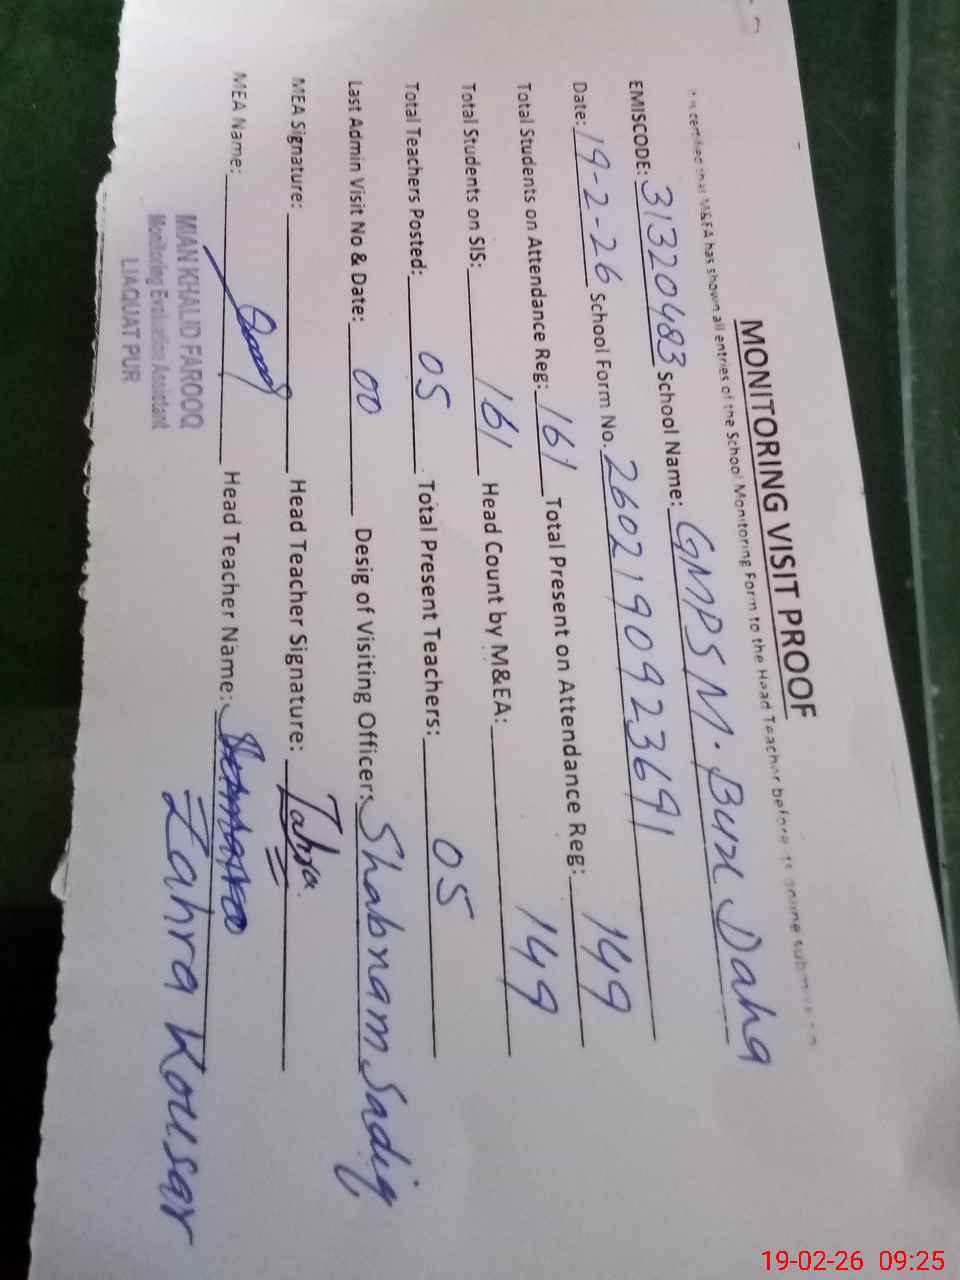 MONITORING VISIT PROOF
It is certified that M&EA has shown all entries of the School Monitoring Form to the Head Teacher before its online submission
EMISCODE: 31320483 School Name: GMPS M. Bux Daha
Date: 19-2-26 School Form No. 2602190923691
Total Students on Attendance Reg: 161 Total Present on Attendance Reg: 149
Total Students on SIS: 161 Head Count by M&EA: 149
Total Teachers Posted: 05 Total Present Teachers: 05
Last Admin Visit No & Date: 00 Desig of Visiting Officer: Shabnam Sadiq
MEA Signature: Head Teacher Signature: Zahra
MEA Name: Head Teacher Name: Zahra Kousar
MIAN KHALID FAROOQ
Monitoring Evaluation Assistant
LIAQUAT PUR
19-02-26 09:25